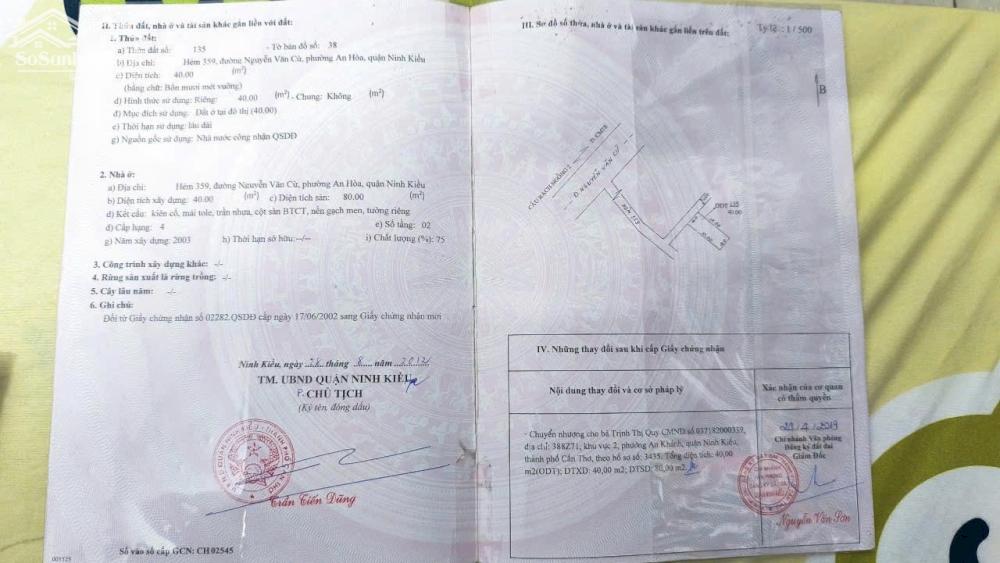 II. Thửa đất, nhà ở và tài sản khác gắn liền với đất:
1. Thửa đất:
a) Thửa đất số: 135 - Tờ bản đồ số: 38
b) Địa chỉ: Hẻm 359, đường Nguyễn Văn Cừ, phường An Hòa, quận Ninh Kiều
c) Diện tích: 40.00 (m²)
(bằng chữ: Bốn mươi mét vuông)
d) Hình thức sử dụng: Riêng: 40.00 (m²) - Chung: Không (m²)
đ) Mục đích sử dụng: Đất ở tại đô thị (40.00)
e) Thời hạn sử dụng: lâu dài
g) Nguồn gốc sử dụng: Nhà nước công nhận QSDĐ
2. Nhà ở:
a) Địa chỉ: Hẻm 359, đường Nguyễn Văn Cừ, phường An Hòa, quận Ninh Kiều
b) Diện tích xây dựng: 40.00 (m²) c) Diện tích sàn: 80.00 (m²)
d) Kết cấu: kiên cố, mái tole, trần nhựa, cột sàn BTCT, nền gạch men, tường riêng
đ) Cấp hạng: 4 e) Số tầng: 02
g) Năm xây dựng: 2003 h) Thời hạn sở hữu: --/-- i) Chất lượng (%): 75
3. Công trình xây dựng khác: -/-
4. Rừng sản xuất là rừng trồng: -/-
5. Cây lâu năm: -/-
6. Ghi chú:
Đổi từ Giấy chứng nhận số 02282.QSDĐ cấp ngày 17/06/2002 sang Giấy chứng nhận mới
Ninh Kiều, ngày 28 tháng 8 năm 2012
TM. UBND QUẬN NINH KIỀU
P. CHỦ TỊCH
(Ký tên, đóng dấu)
Trần Tiến Dũng
Số vào sổ cấp GCN: CH 02545
III. Sơ đồ số thửa, nhà ở và tài sản khác gắn liền trên đất:
Tỷ lệ: 1/500
B
CẦU RẠCH NGỖNG 1
Đ. CMT8
Đ. NGUYỄN VĂN CỪ
135
40.00
IV. Những thay đổi sau khi cấp Giấy chứng nhận
Nội dung thay đổi và cơ sở pháp lý
Xác nhận của cơ quan
có thẩm quyền
- Chuyển nhượng cho bà Trịnh Thị Quy CMND số 037182000359,
địa chỉ: 388Z71, khu vực 2, phường An Khánh, quận Ninh Kiều,
thành phố Cần Thơ, theo hồ sơ số: 3435. Tổng diện tích: 40,00
m2(ODT); DTXD: 40,00 m2; DTSD: 80,00 m2.
29/4/2019
Chi nhánh Văn phòng
Đăng ký đất đai
Giám Đốc
Nguyễn Văn Sơn